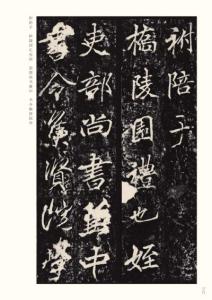 祔陪于
橋陵園禮也姪
吏部尚書兼中
書令集賢院學